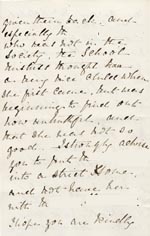 given them back. and
especially to
who was not in the
Society. The School
Mistress thought her
a very nice child when
she first came. But was
beginning to find out
how untruthful, and
that she was not so
good. I strongly advise
you to put
into a strict Home.
and not have her
with
I hope you are kindly